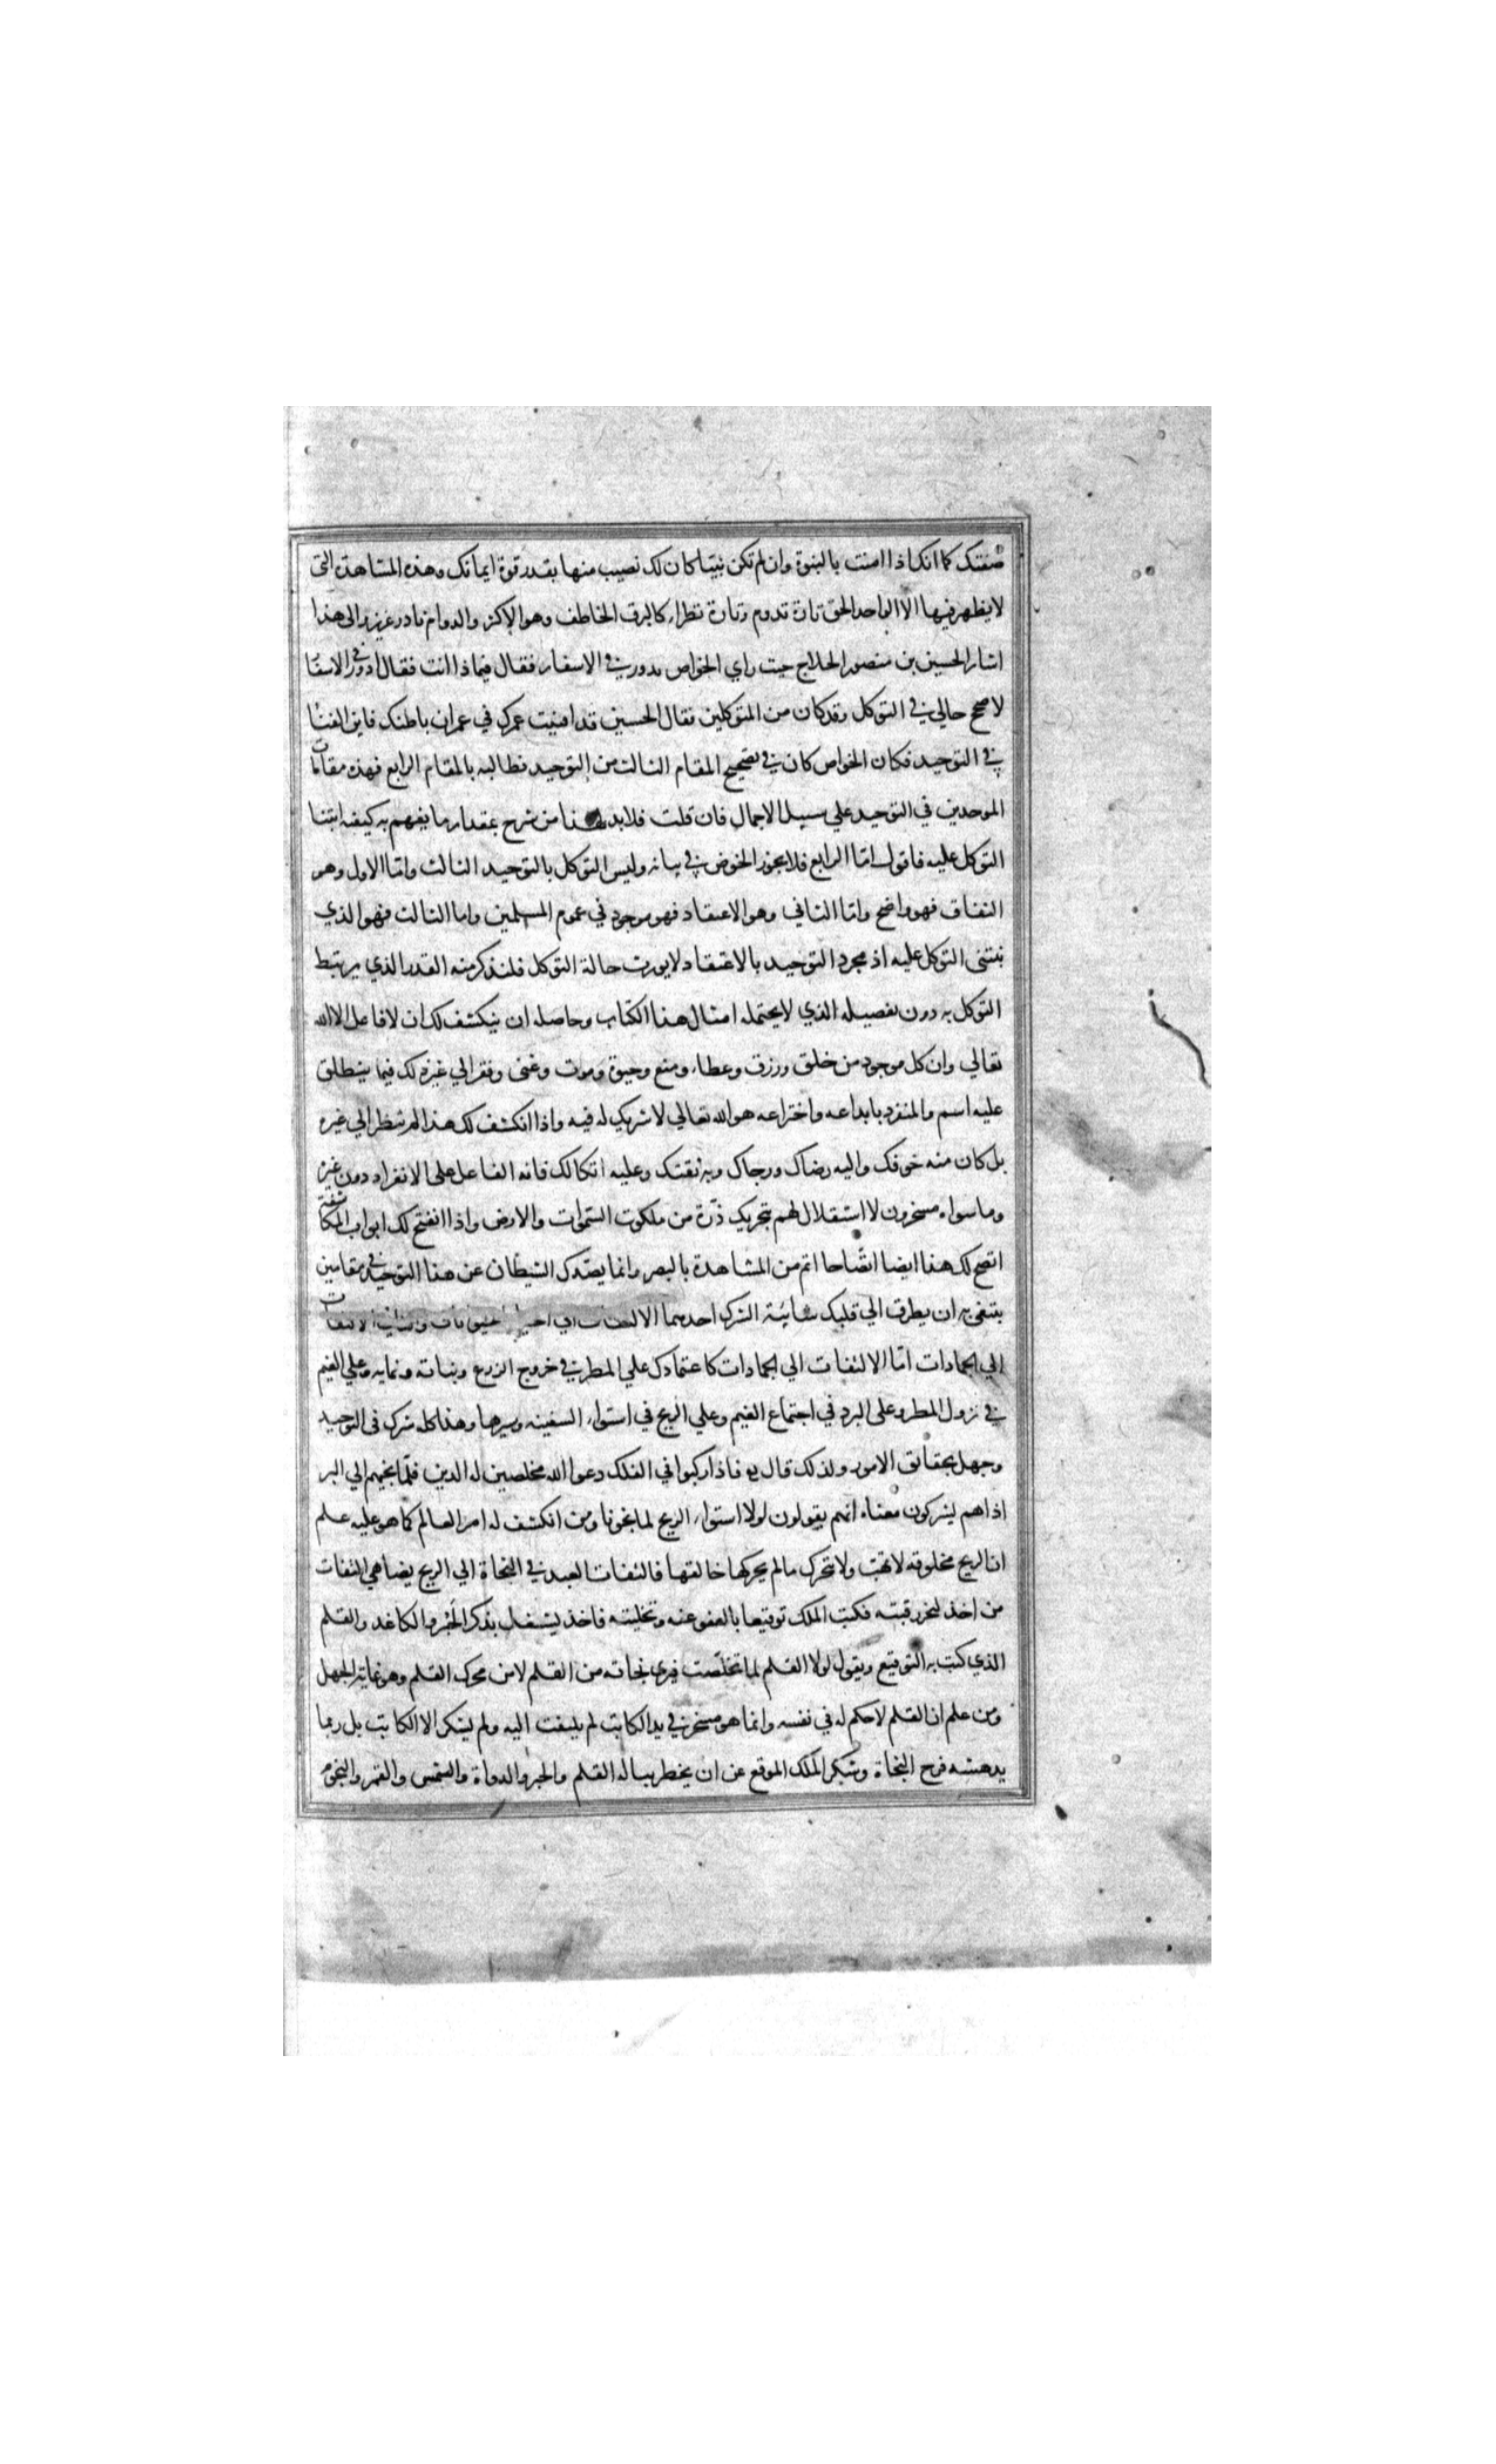 صفتك كما انك اذا امنت بالنبوة وان لم تكن نبيا كان لك نصيب منها بقدر قوة ايمانك وهذه المشاهدة التى
لا يظهر فيها الا الواحد الحق تارة تدوم وتارة تطرا كالبرق الخاطف وهو الاكثر والدوام نادر عزيز والى هذا
اشار الحسين بن منصور الحلاج حيث راي الخواص يدور في الاسفار فقال فيماذا انت فقال ادور في الاسفا
لاصحح حالي في التوكل وقد كان من المتوكلين فقال الحسين قد افنيت عمرك في عمران باطنك فاين الفنا
في التوحيد فكان الخواص كان في تصحيح المقام الثالث من التوحيد فطالبه بالمقام الرابع فهذه مقامات
الموحدين في التوحيد علي سبيل الاجمال فان قلت فلابد لهذا من شرح بمقدار ما يفهم به كيفية ابتنا
التوكل عليه فاقول اما الرابع فلا يجوز الخوض في بيانه وليس التوكل بالتوحيد الثالث واما الاول وهو
النفاق فهو واضح واما الثاني وهو الاعتقاد فهو موجود في عموم المسلمين واما الثالث فهو الذي
نبتنى التوكل عليه اذ مجرد التوحيد بالاعتقاد لا يورث حالة التوكل فلنذكر منه القدر الذي يرتبط
التوكل به دون تفصيله الذي لا يحتمله امثال هذا الكتاب وحاصله ان ينكشف لك ان لا فاعل الا الله
تعالي وان كل موجود من خلق ورزق وعطاء ومنع وحيوة وموت وغنى وفقر الي غير ذلك فيما ينطلق
عليه اسم والمنفرد بابداعه واختراعه هو الله تعالي لا شريك له فيه واذا انكشف لك هذا لم تنظر الي غيره
بل كان منه خوفك واليه رضاك ورجاك وبه ثقتك وعليه اتكالك فانه الفاعل على الانفراد دون غيره
وما سواه مسخرون لا استقلال لهم بتحريك ذرة من ملكوت السموات والارض واذا انفتح لك ابواب المكاشفة
اتضح لك هذا ايضا اتضاحا اتم من المشاهدة بالبصر وانما يصدك الشيطان عن هذا التوحيد في مقامين
يتبغى به ان يطرق الي قلبك شائبة الشرك احدهما الالتفات الي اختيار الالتفات
الي الجمادات اما الالتفات الي الجمادات كاعتمادك علي المطر في خروج الزرع ونباته ونمايه وعلي الغيم
في نزول المطر وعلى البرد في اجتماع الغيم وعلي الريح في استواء السفينه وسيرها وهذا كله شرك فى التوحيد
وجهل بحقائق الامور ولذلك قال فاذا ركبوا في الفلك دعوا الله مخلصين له الدين فلما نجيهم الي البر
اذاهم يشركون معناه انهم يقولون لولا استواء الريح لما نجونا ومن انكشف له امر العالم كما هو عليه علم
ان الريح مخلوقه لا تهب ولا تتحرك ما لم يحركها خالقها فالتفات العبد في النجاة الي الريح يضاهي التفات
من اخذ لتحز رقبته فكتب الملك توقيعا بالعفو عنه وتخليته فاخذ يشتغل بذكر الحبر والكاغد والقلم
الذي كتب به التوقيع ويقول لولا القلم لما تخلصت فيرى نجاته من القلم لا من محرك القلم وهو نهاية الجهل
ومن علم ان القلم لا حكم له في نفسه وانما هو مسخر في يد الكاتب لم يلتفت اليه ولم يشكر الا الكاتب بل ربما
يدهشه فرح النجاة وشكر الملك الموقع عن ان يخطر بباله القلم والحبر والدواة والشمس والقمر والنجوم